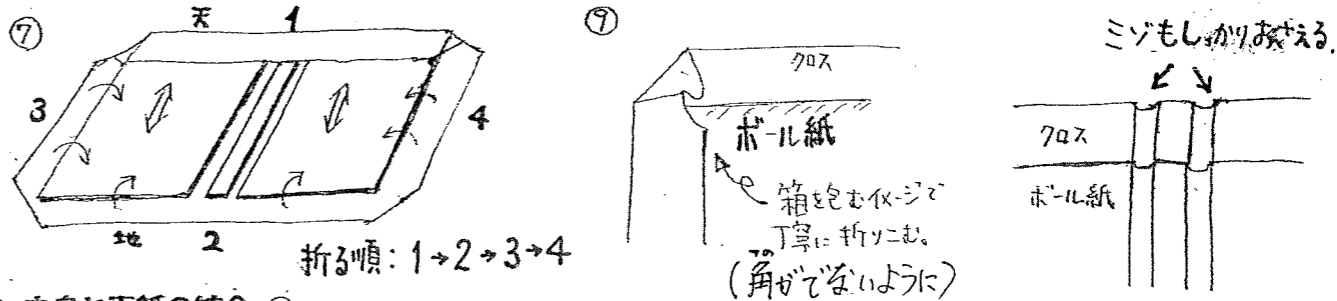 ⑦
天 1
3
4
地 2
折る順：1→2→3→4
⑨
クロス
ボール紙
箱を包むイメージで
丁寧に折りこむ。
つの
(角がでないように)
ミゾもしっかりおさえる.
クロス
ボール紙